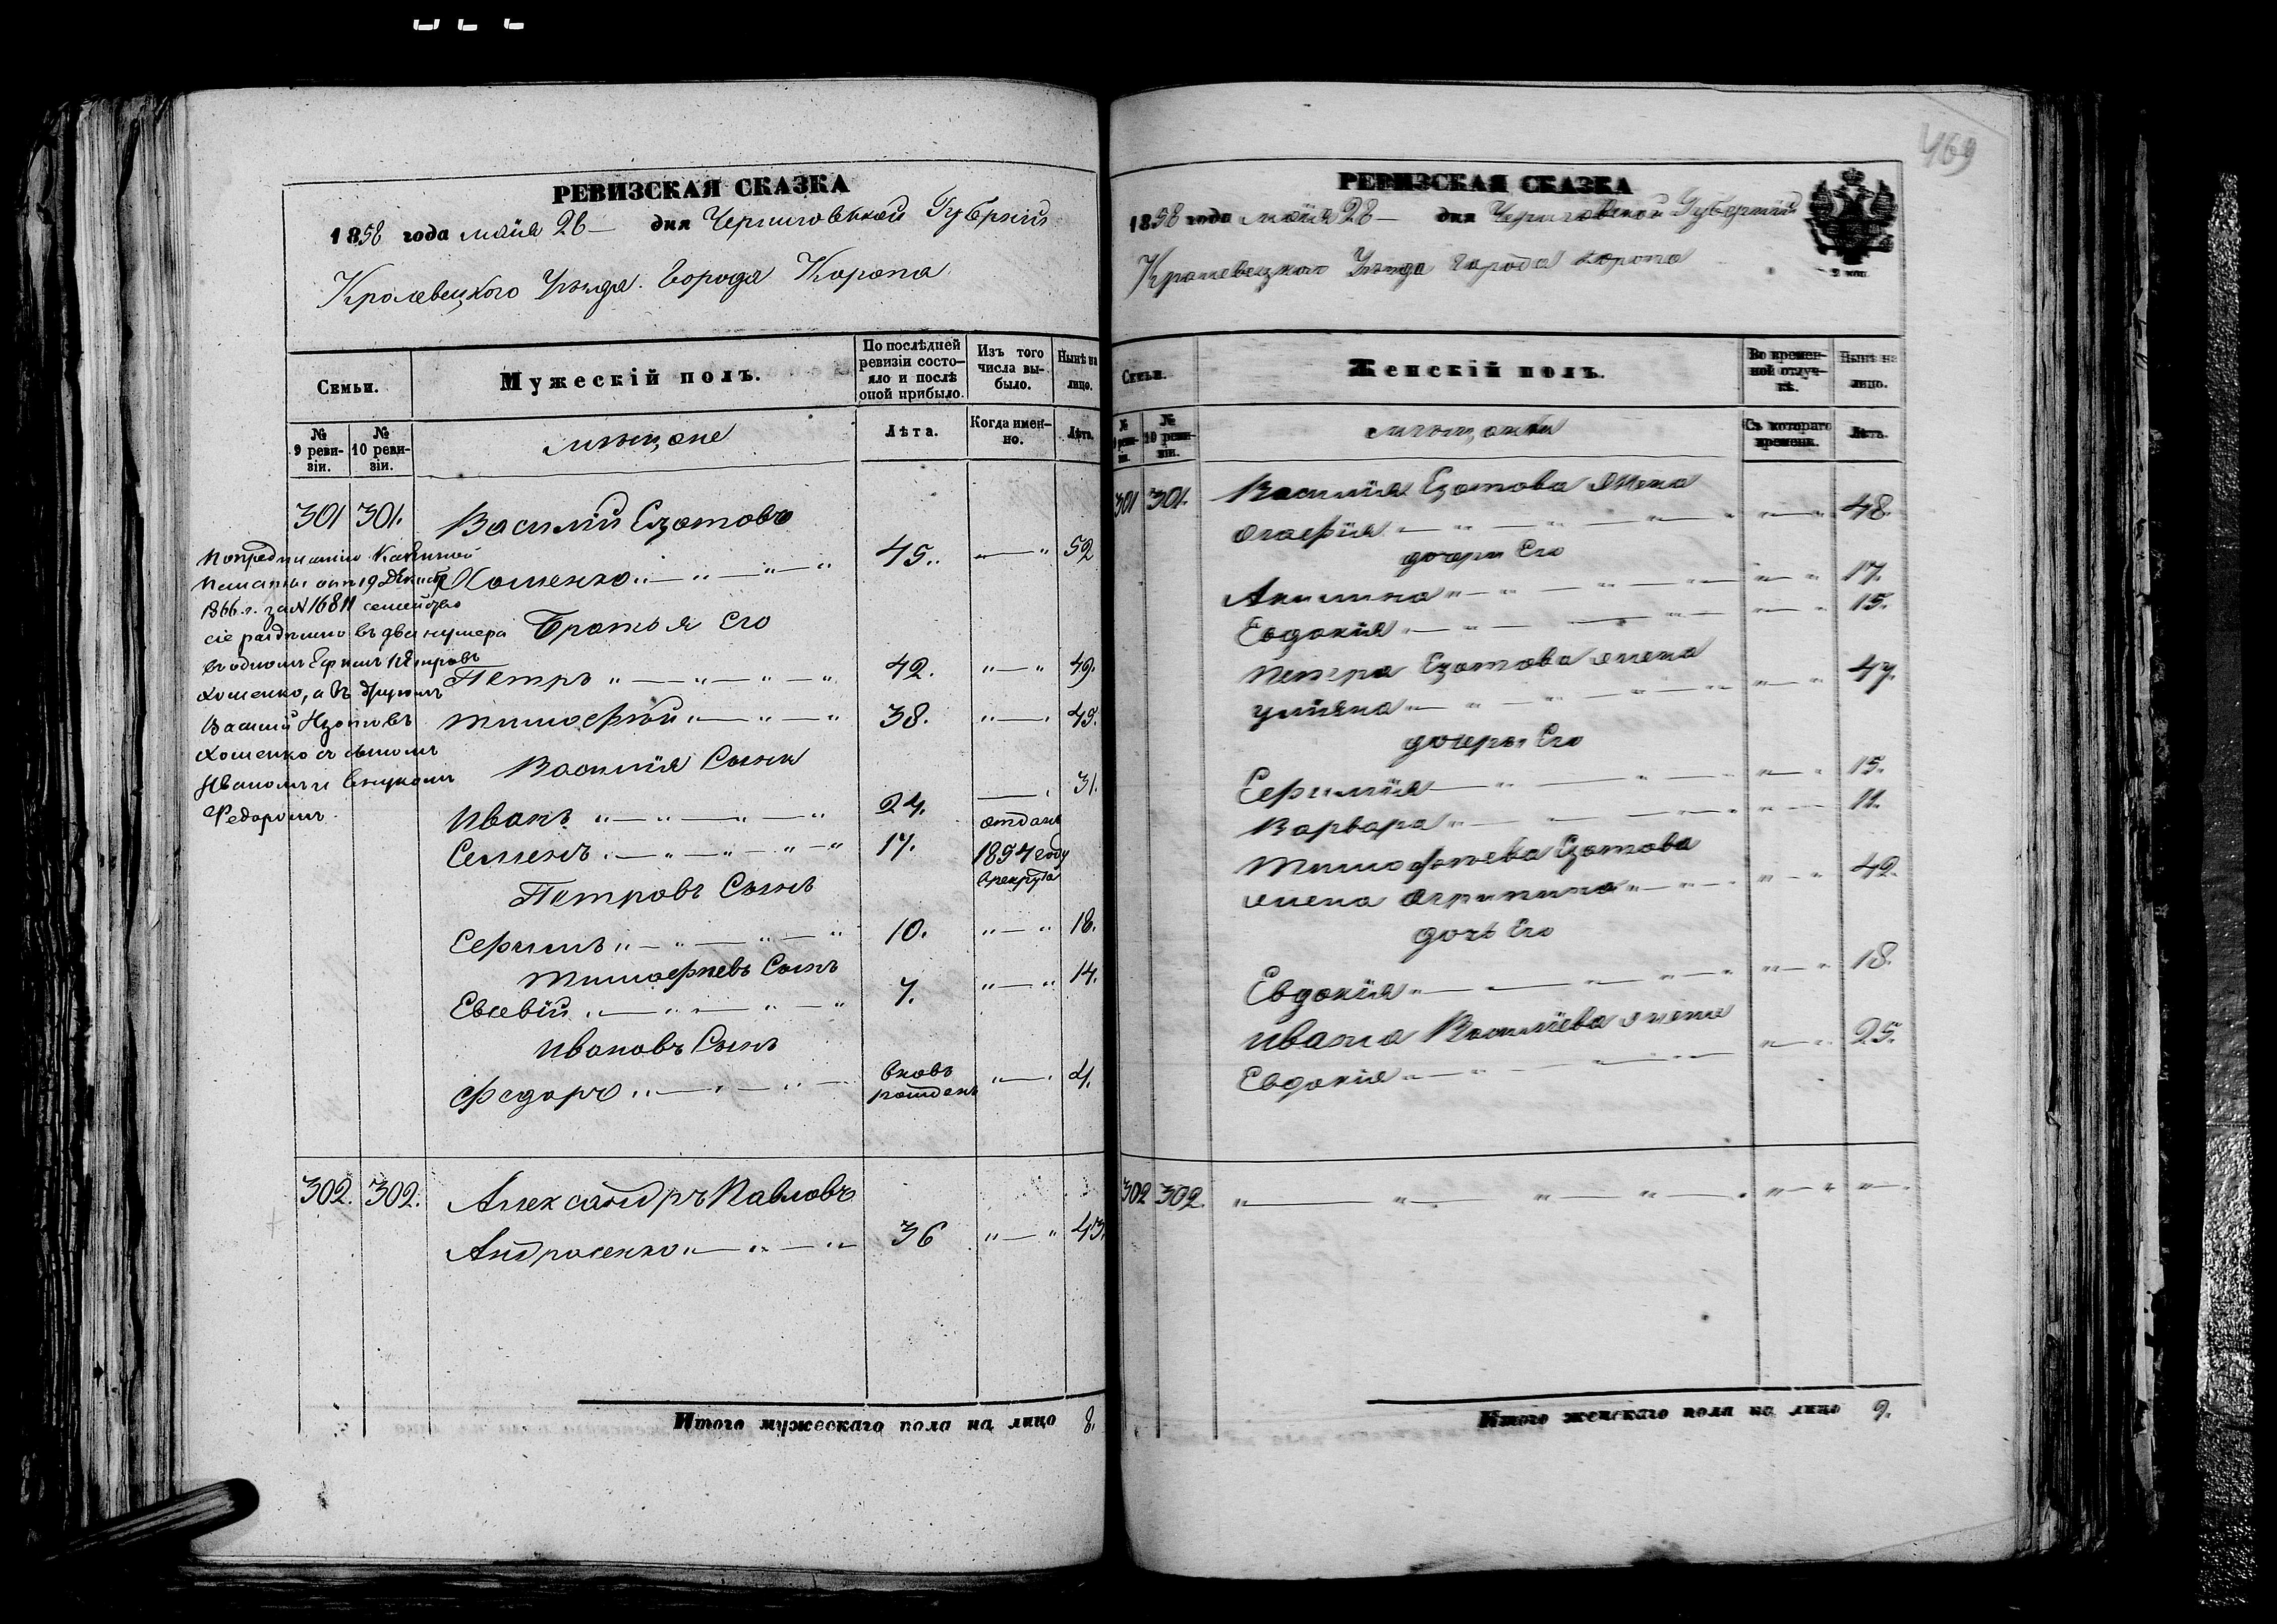 РЕВИЗСКАЯ СКАЗКА
1858 года маiя 28 дня Черниговской Губернiи
Кролевецкого Уѣзда Города Коропа
Семьи.
Мужескiй полъ.
По послѣдней ревизiи состо-
яло и послѣ
оной прибыло.
Изъ того
числа вы-
было.
Нынѣ на
лицо.
№
9 реви-
зiи.
№
10 реви-
зiи.
мѣщане
Лѣта.
Когда имен-
но.
Лѣта.
301 301. Василiй Езотовъ
Хоменко 45. 52
Братья Его
Петръ 42. 49.
Тимофѣй 38. 45.
Василiя Сыны
Иванъ 24. 31.
Семенъ 17. отданъ
1854 году
в рекруты
Петровъ Сынъ
Ефимъ 10. 18.
Тимофѣевъ Сынъ
Евсевiй 7. 14.
Ивановъ Сынъ
Федоръ вновь
рожденъ 4.
По предписанiю Казенной
Палаты отъ 19 Декабр
1866 г. за № 16811 семейство
сiе раздѣлено въ два нумера
въ одномъ Ефимъ Петровъ
Хоменко, а въ другомъ
Василiй Изотовъ
Хоменко съ сыномъ
Иваномъ и внукомъ
Федоромъ.
302. 302. Александръ Павловъ
Андросенко 36 43.
Итого мужескаго пола на лицо 8.
469
РЕВИЗСКАЯ СКАЗКА
1858 года маiя 28 дня Черниговской Губернiи
Кролевецкого Уѣзда Города Коропа
Семьи.
Женскiй полъ.
Во времен-
ной отлуч-
кѣ.
Нынѣ на
лицо.
№
9 реви-
зiи.
№
10 реви-
зiи.
мѣщанки
Съ котораго
времени.
Лѣта.
301 301. Василiя Езотова жена
Агафiя 48.
дочери Его
Акилина 17.
Евдокiя 15.
Петра Езотова жена
Улiяна 47.
дочеры Его
Ефимiя 15.
Варвара 11.
Тимофѣева Езотова
жена Агрипина 42.
дочь Его
Евдокiя 18.
Ивана Василiева жена
Евдокiя 25.
302 302.
Итого женскаго пола на лицо 9.